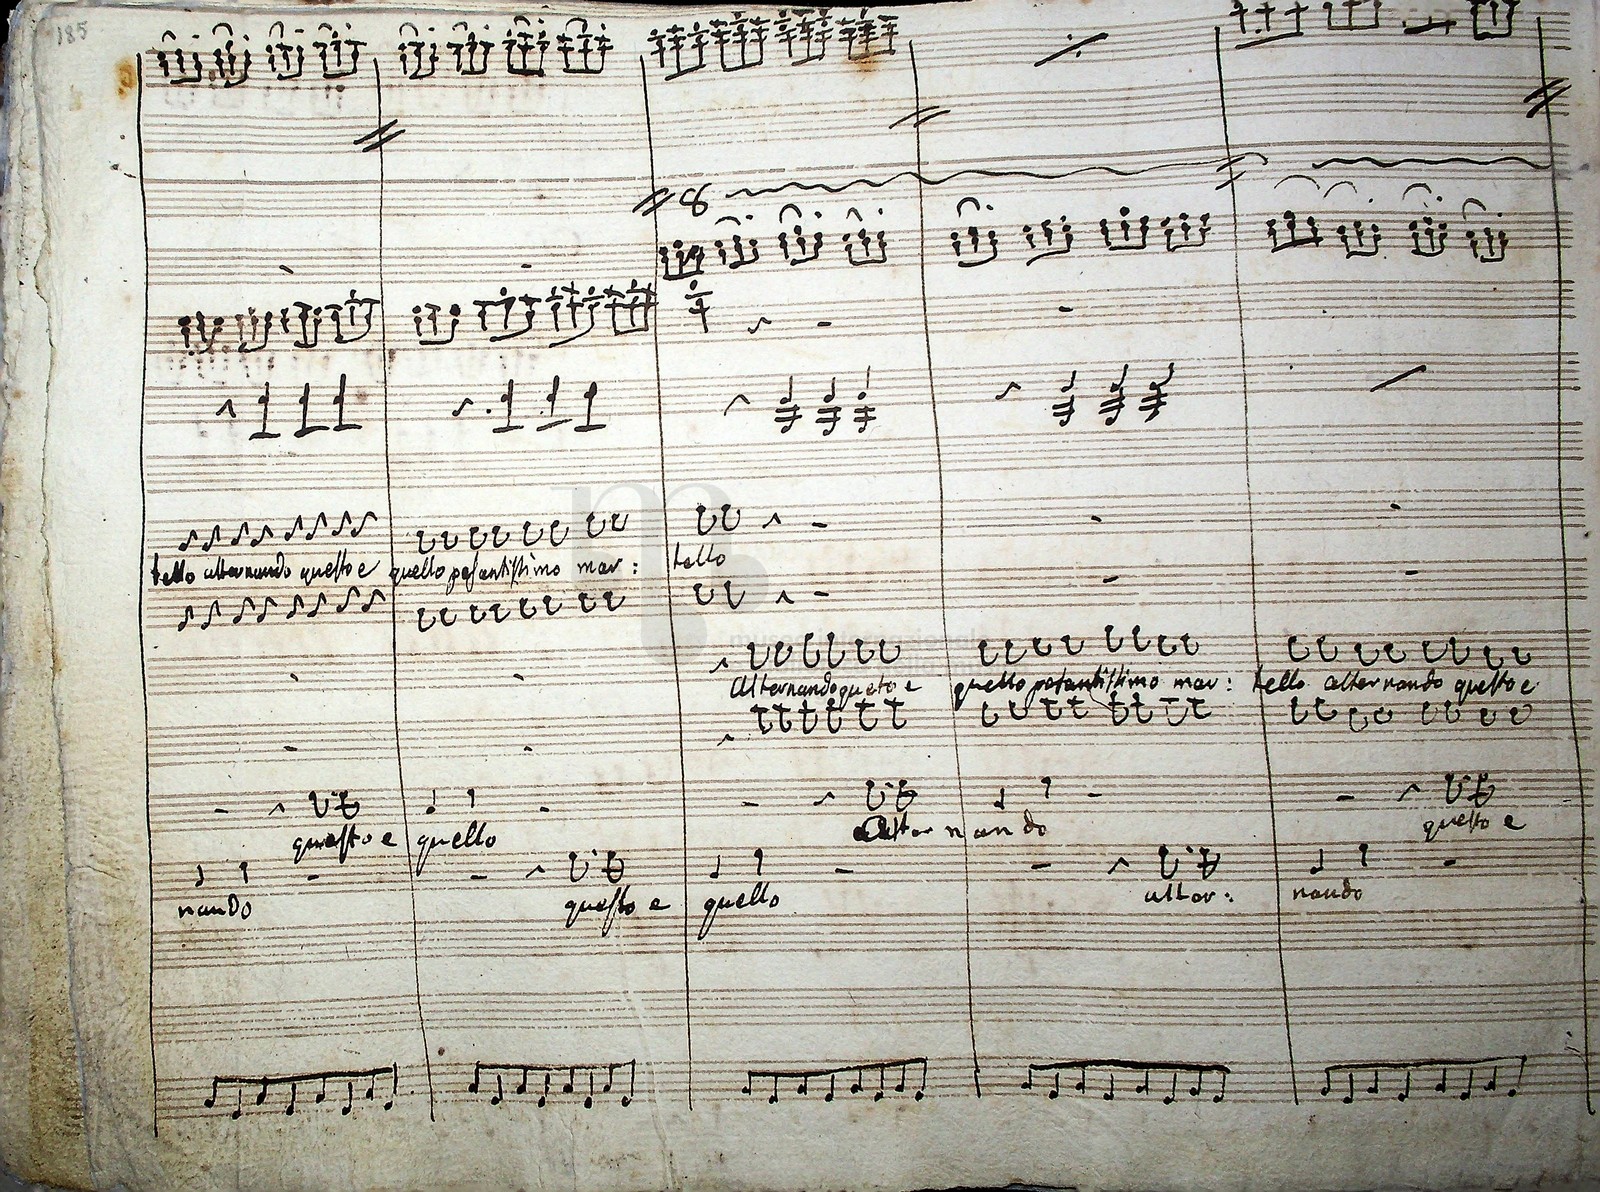 185
8
tello alternando questo e quello pesantissimo mar: tello
Alternando queto e quello pesantissimo mar: tello alternando questo e
questo e quello Alter nando questo e
nando questo e quello alter: nando
museo internazionale